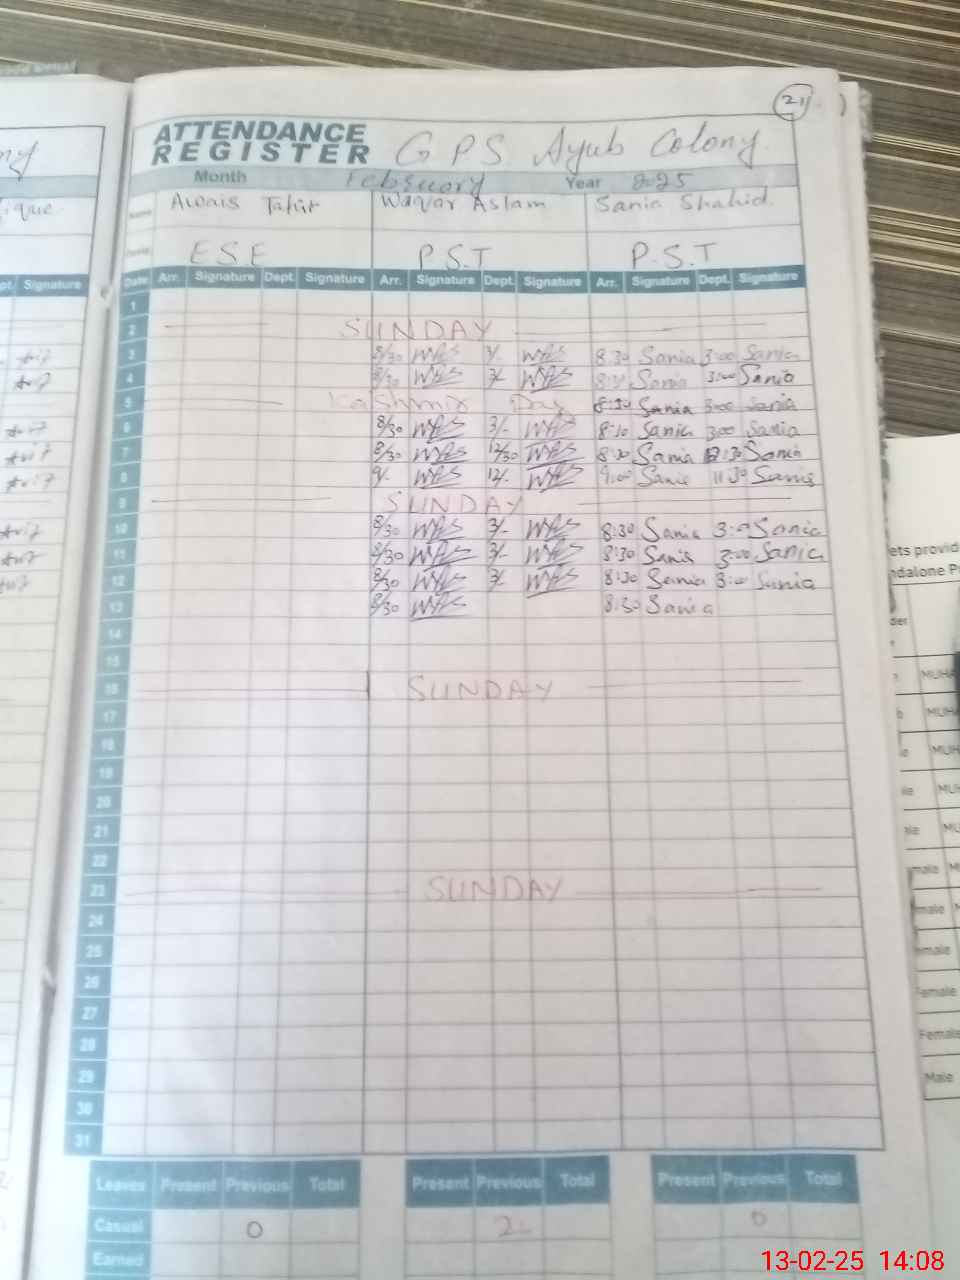 21
ATTENDANCE
REGISTER GPS Ayub Colony
Month February Year 2025
Name Awais Tahir Waqar Aslam Sania Shahid
E S E P.S.T P.S.T
Date Arr. Signature Dept. Signature Arr. Signature Dept. Signature Arr. Signature Dept. Signature
1
2 SUNDAY
3 8/30 3/- 8:30 Sania 3:00 Sania
4 8/30 3/- Sania 3:00 Sania
5 Kashmir Day 8:30 Sania 3:00 Sania
6 8/30 3/- 8:30 Sania 3:00 Sania
7 8/30 12/30 8:30 Sania Sania
8 9/- 12/- 9:00 Sania 11:30 Sania
9 SUNDAY
10 8/30 3/- 8:30 Sania Sania
11 8/30 3/- 8:30 Sania 3:00 Sania
12 8/30 3/- 8:30 Sania 3:00 Sania
13 8/30 8:30 Sania
14
15
16 SUNDAY
17
18
19
20
21
22
23 SUNDAY
24
25
26
27
28
29
30
31
Leaves Present Previous Total Present Previous Total Present Previous Total
Casual 0 2 0
Earned
ique
Signature
ets provid
ndalone P
MUHA
MUH
MUH
MUH
male
male
Female
Female
Male
13-02-25 14:08